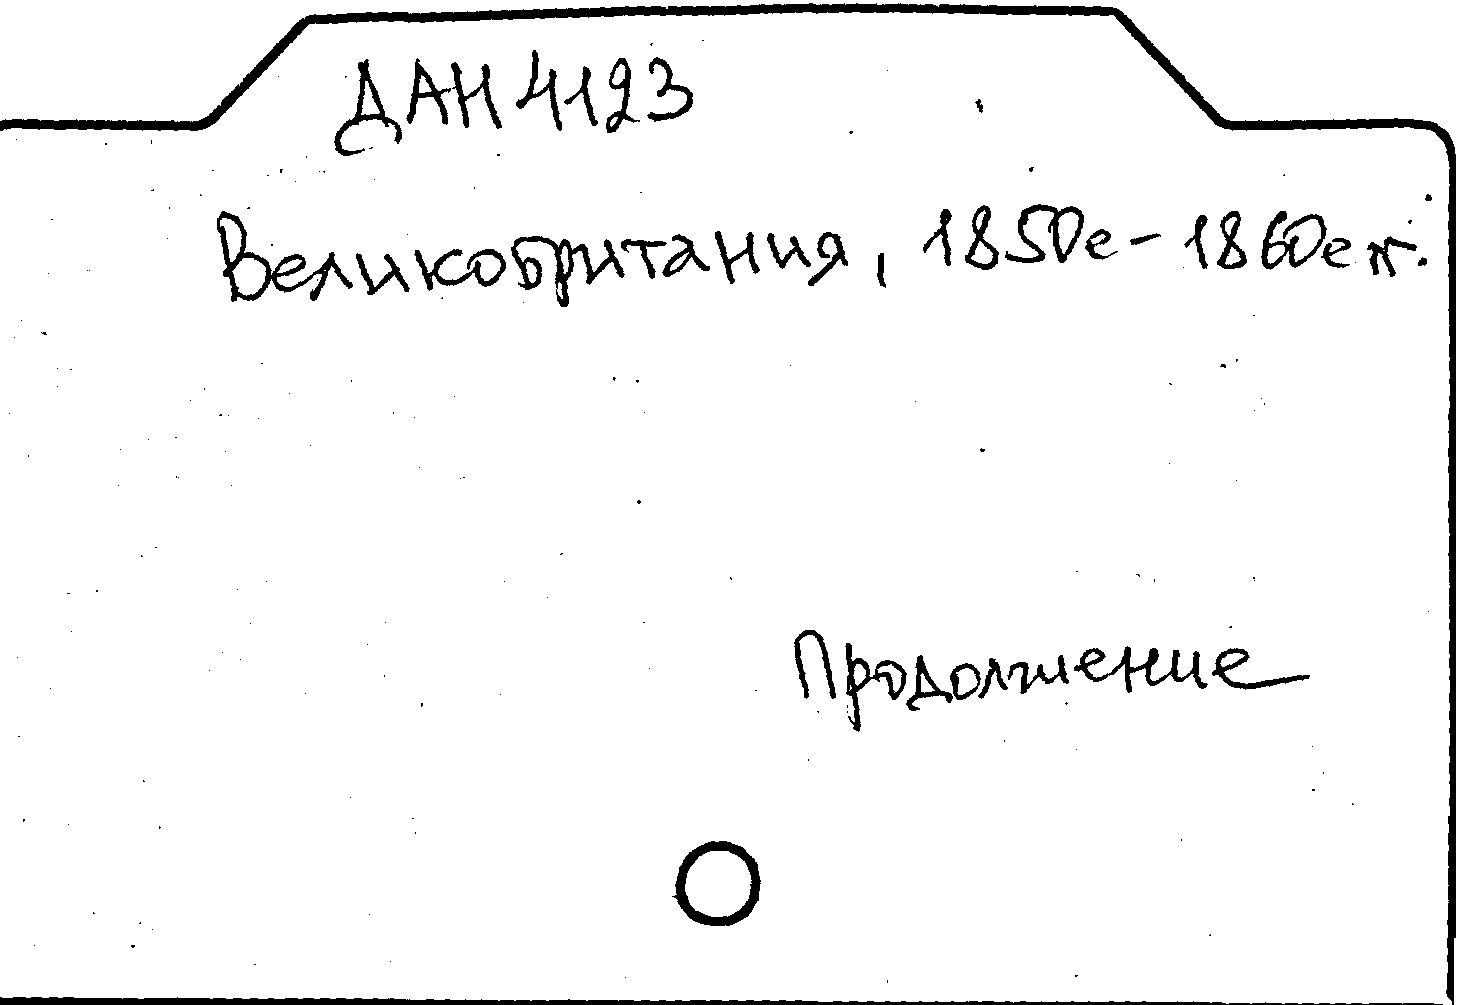 ДАН 4123
Великобритания, 1850е - 1860е гг.
Продолжение